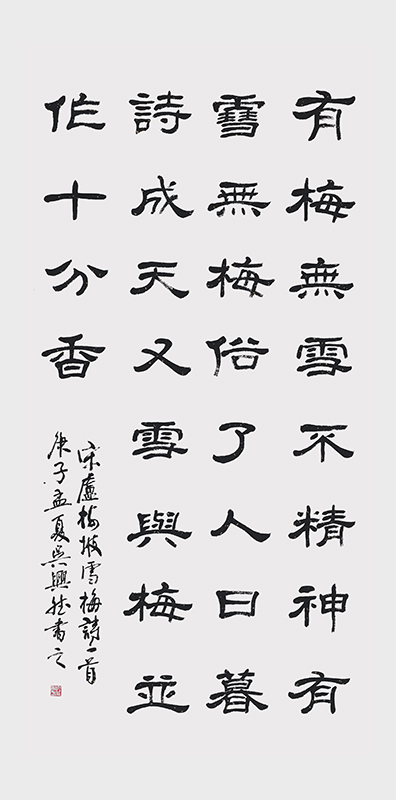 有梅無雪不精神有
雪無梅俗了人日暮
詩成天又雪與梅並
作十分香
宋盧梅坡雪梅詩一首
庚子孟夏吳興書之